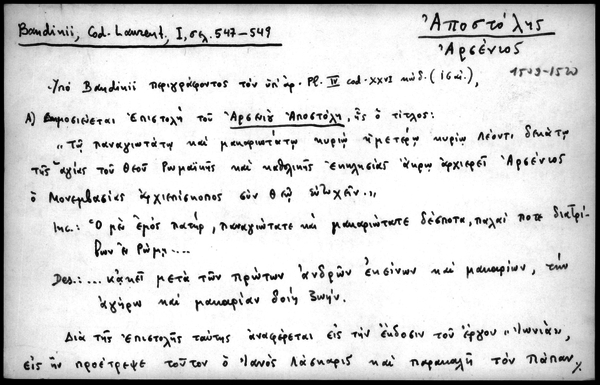 Bandinii, Cod. Laurent, I, σελ. 547-549
Ἀποστόλης
Ἀρσένιος
1509-1520
Ὑπὸ Bandinii περιγράφοντος τὸν ὑπ' ἀρ. Pl. IV cod. XXVI κώδ. (ις αἰ.),
Α) Δημοσιεύεται ἐπιστολὴ τοῦ Ἀρσενίου Ἀποστόλη, ἧς ὁ τίτλος:
"Τῷ παναγιωτάτῳ καὶ μακαριωτάτῳ κυρίῳ ἡμετέρῳ κυρίῳ Λέοντι δεκάτῳ
τῆς ἁγίας τοῦ Θεοῦ Ρωμαϊκῆς καὶ καθολικῆς ἐκκλησίας ἄκρῳ ἀρχιερεῖ Ἀρσένιος
ὁ Μονεμβασίας ἀρχιεπίσκοπος σὺν Θεῷ εὐτυχεῖν."
Inc.: Ὁ μὲν ἐμὸς πατήρ, παναγιώτατε καὶ μακαριώτατε δέσποτα, πάλαι ποτε διατρί-
βων ἐν Ρώμῃ....
Des.: ... κἀκεῖ μετὰ τῶν πρώτων ἀνδρῶν ἐκείνων καὶ μακαρίων, τὴν
ἀγήρω καὶ μακαρίαν δοίη ζωήν.
Διὰ τῆς ἐπιστολῆς ταύτης ἀναφέρεται εἰς τὴν ἔκδοσιν τοῦ ἔργου "Ἰωνιὰ",
εἰς ἣν προέτρεψε τοῦτον ὁ Ἰανὸς Λάσκαρις καὶ παρακαλῆ τὸν Πάπαν